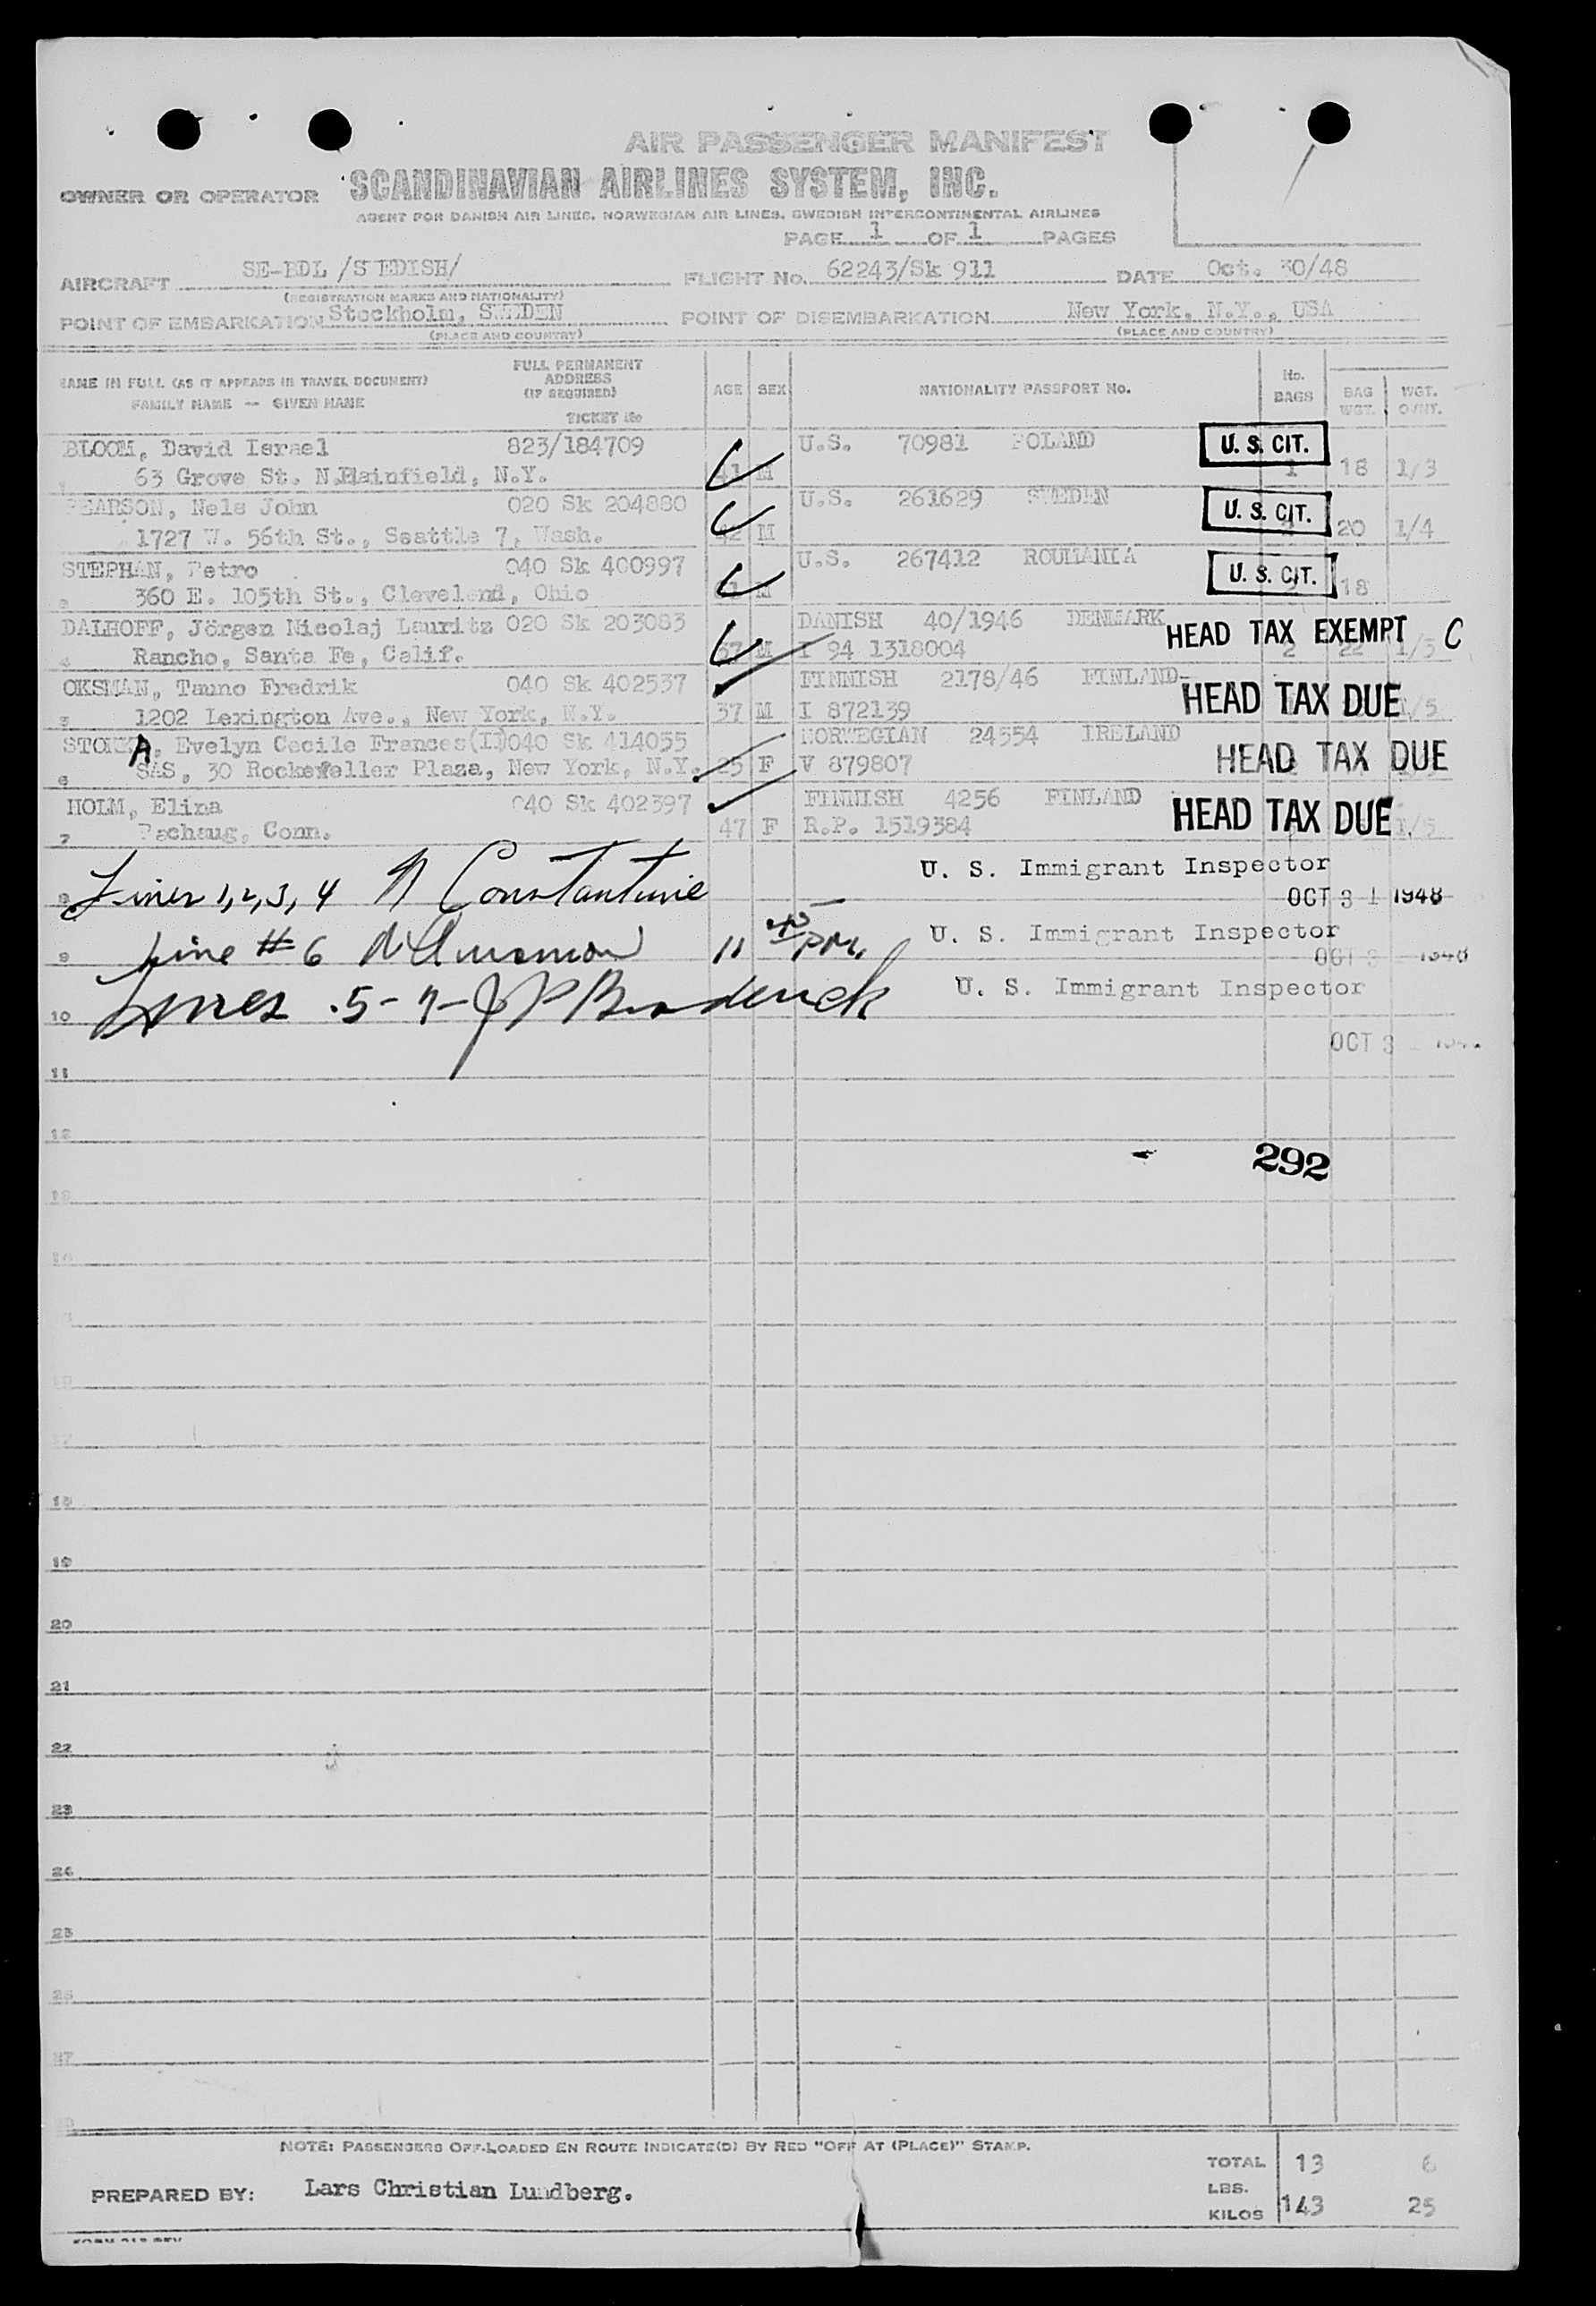 AIR PASSENGER MANIFEST
OWNER OR OPERATOR SCANDINAVIAN AIRLINES SYSTEM, INC.
AGENT FOR DANISH AIR LINES, NORWEGIAN AIR LINES, SWEDISH INTERCONTINENTAL AIRLINES
PAGE 1 OF 1 PAGES
AIRCRAFT SE-BDL /S EDISH/ FLIGHT No. 62243/Sk 911 DATE Oct. 30/48
(REGISTRATION MARKS AND NATIONALITY)
POINT OF EMBARKATION Stockholm, SWEDEN POINT OF DISEMBARKATION New York, N.Y., USA
(PLACE AND COUNTRY) (PLACE AND COUNTRY)
NAME IN FULL (AS IT APPEARS IN TRAVEL DOCUMENT) FULL PERMANENT ADDRESS (IF REQUIRED) AGE SEX NATIONALITY PASSPORT No. No. BAGS BAG WGT. WGT. OVNT.
FAMILY NAME — GIVEN NAME TICKET No
BLOOM, David Israel 823/184709 U.S. 70981 POLAND U. S. CIT.
1 63 Grove St. N.Plainfield, N.Y. 41 M 1 18 1/3
PEARSON, Nels John 020 Sk 204880 U.S. 261629 SWEDEN U. S. CIT.
1727 W. 56th St., Seattle 7, Wash. 42 M 20 1/4
STEPHAN, Petro 040 Sk 400997 U.S. 267412 ROUMANIA U. S. CIT.
3 360 E. 105th St., Cleveland, Ohio M 18
DALHOFF, Jörgen Nicolaj Lauritz 020 Sk 203083 DANISH 40/1946 DENMARK HEAD TAX EXEMPT C
4 Rancho, Santa Fe, Calif. 37 M I 94 1318004 2 22 1/5
OKSMAN, Tauno Fredrik 040 Sk 402537 FINNISH 2178/46 FINLAND HEAD TAX DUE
5 1202 Lexington Ave., New York, N.Y. 37 M I 872139 1/5
STORKA, Evelyn Cecile Frances(II) 040 Sk 414055 NORWEGIAN 24554 IRELAND HEAD TAX DUE
6 SAS, 30 Rockefeller Plaza, New York, N.Y. 25 F V 879807
HOLM, Elina 040 Sk 402397 FINNISH 4256 FINLAND HEAD TAX DUE
7 Pachaug, Conn. 47 F R.P. 1519384 1/5
U. S. Immigrant Inspector
8 Lines 1, 2, 3, 4 N Constantine OCT 31 1948
9 Line # 6 11 45 PM. U. S. Immigrant Inspector
OCT 3 1948
10 Lines 5-7- J P Broderick U. S. Immigrant Inspector
OCT 3
11
12
292
13
18
19
20
21
22
23
24
25
26
27
NOTE: PASSENGERS OFF-LOADED EN ROUTE INDICATE(D) BY RED "OFF AT (PLACE)" STAMP.
TOTAL 13 6
PREPARED BY: Lars Christian Lundberg. LBS.
KILOS 143 25